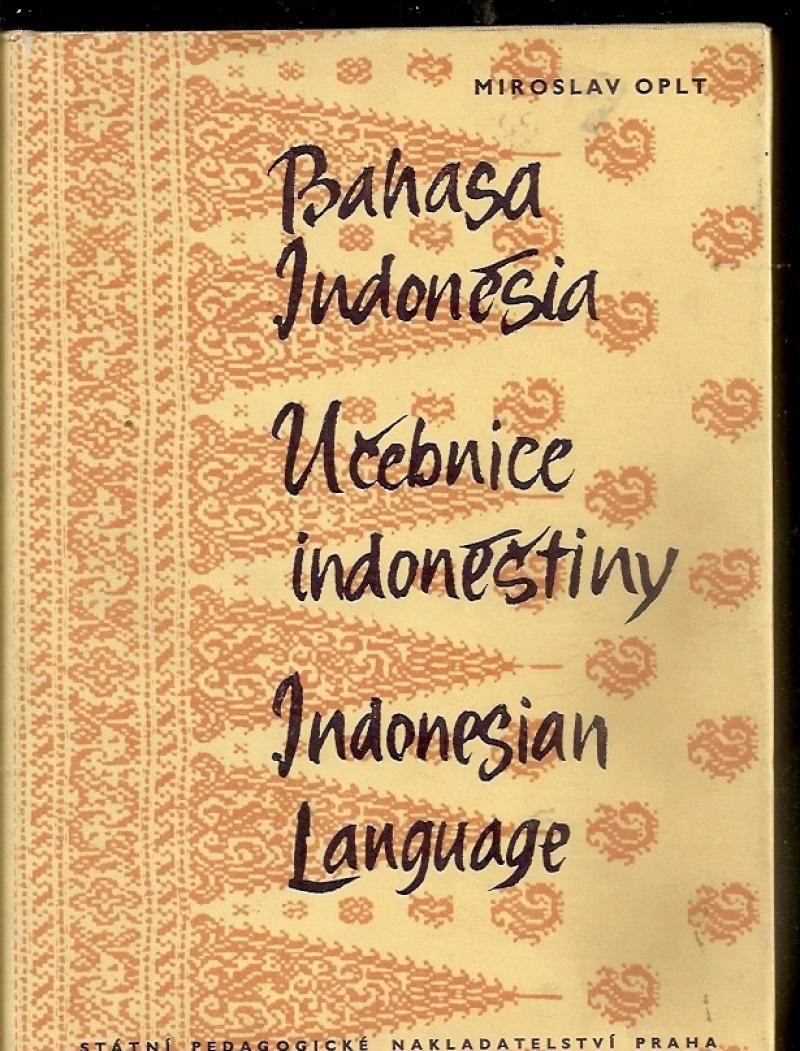 MIROSLAV OPLT
Bahasa
Indonésia
Učebnice
indonéštiny
Indonesian
Language
STÁTNÍ PEDAGOGICKÉ NAKLADATELSTVÍ PRAHA